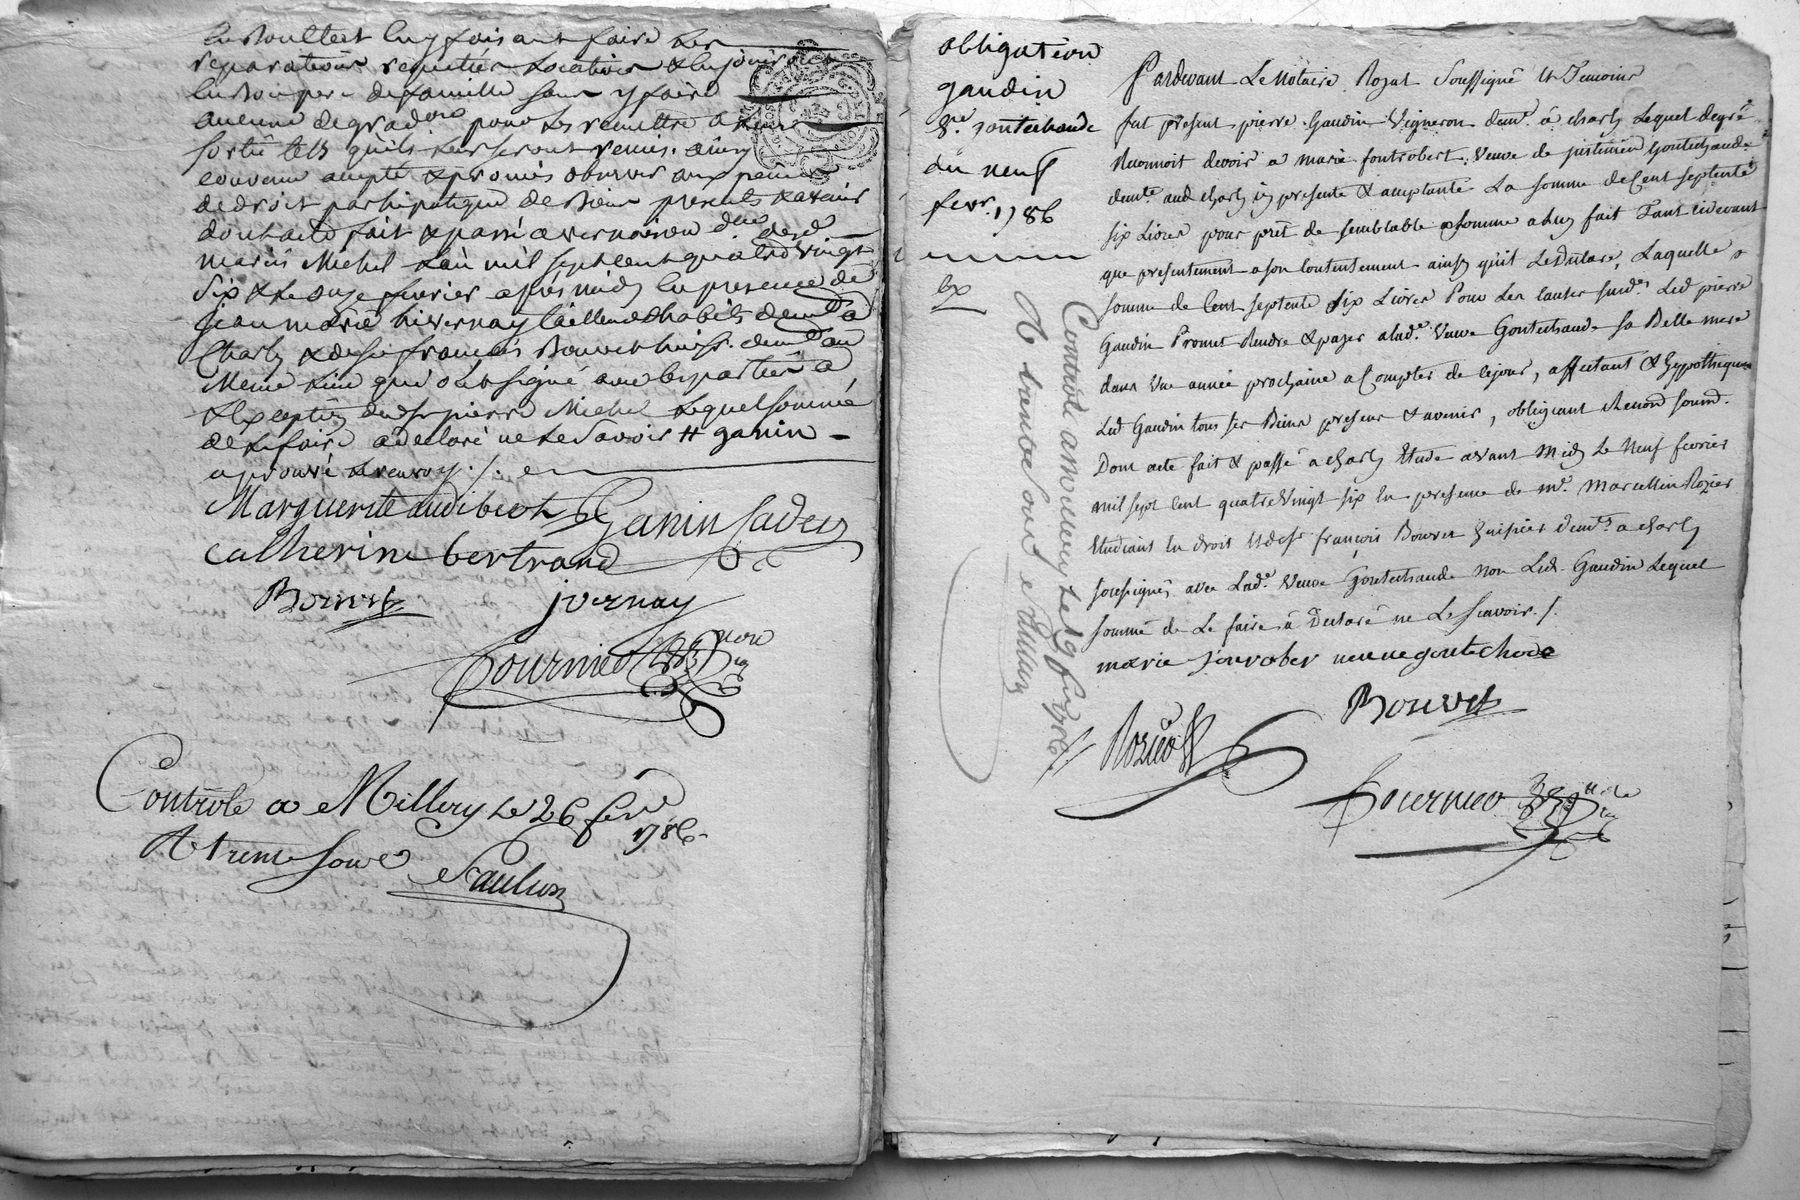 reparations
de famille sans y faire
aucune degrad.ons pour les remettre a leur
sortie tels qu'ils leur seront remis. ainsy
convenu accepté & promis observer aux peines
de droit par hipoteque de biens presents & avenir
dont acte fait & passé a vernaison
Michel l'an mil sept cent quatre vingt
Six & le onze fevrier apres midy en presence de
jean marie hivernay tailleur d'habits demt a
Charly & de sr françois Bouvet huissr. demt au
Meme lieu qui ont signé avec les parties a
l'exception dud sr pierre Michel lequel sommé
de le faire a declaré ne le savoir # ganin -
aprouvé le renvoy ./.
Marguerite audibert Ganin
catherine bertrand
Bouvet jvernay
fournier
Controlé a Millery le 26 fevr
1786
R trente sous
Saulion
obligation
gaudin
ve. gontechaude
du neuf
fevr. 1786
Pardevant Le Notaire Royal Soussigné & Temoins
fut présent pierre Gaudin Vigneron demt. à charly Lequel degré
Reconnoit devoir a marie fontrobert Veuve de justinien Gontechaude
demte aud charly icy presente & acceptante La somme de Cent septente
six Livres pour prêt de semblable somme a luy fait Tant cidevant
que presentement a son Contentement ainsy qu'il Le Déclare, Laquelle
somme de Cent septente six Livres Pour Les Causes susd.es Led pierre
Gaudin Promet Rendre & payer a lad.e Veuve Gontechaude sa Belle mere
dans Une année prochaine a Compter de cejour, affectant & hyppothequant
Led Gaudin tous ses Biens presens & avenir, obligeant Renond soumd.
Dont acte fait & passé a charly Etude avant Midy Le Neuf fevrier
mil sept Cent quatre Vingt six En presence de Mr. Marcellin Rozier
Etudiant En droit & de sr françois Bouvet huissier demts a charly
soussignés avec Lad.e Veuve Gontechaude Non Led. Gaudin Lequel
sommé de Le faire à Déclaré ne Le sçavoir ./.
marie fonrober veuve gontechode
Bouvet
Rozier
fournier
Controlé a Millery le 19 fevr 1786
R trente sous
Saulion